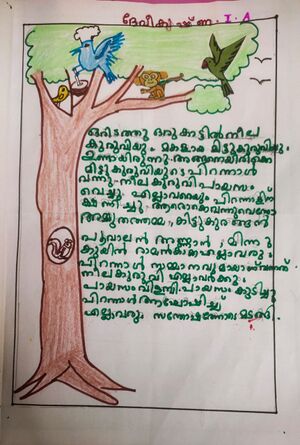 ദേവീകൃഷ്ണ. I. A
ഒരിടത്തു ഒരു കാട്ടിൽ നീല
കുരുവിയും മകളായ മിട്ടുകുരുവിയും
ഉണ്ടായിരുന്നു. അങ്ങനെയിരിക്കെ
മിട്ടുകുരുവിയുടെ പിറന്നാൾ
വന്നു. നീലകുരുവി പായസം
വെച്ചു. എല്ലാവരെയും പിറന്നാളിന്
ക്ഷണിച്ചു. ആരൊക്കെവന്നുവെന്നോ
അമ്മുതത്തമ്മ, കിട്ടുകുരങ്ങൻ
പൂവാലൻ അണ്ണാൻ, മിന്നു
കുയിൽ രാമൻകാക്ക എല്ലാവരും.
പിറന്നാൾ സമ്മാനവുമായാണ് വന്നത്
നീലകുരുവി എല്ലാവർക്കും
പായസം വിളമ്പി. പായസം കുടിച്ചു
പിറന്നാൾ ആഘോഷിച്ച്
എല്ലാവരും സന്തോഷത്തോടെ മടങ്ങി.